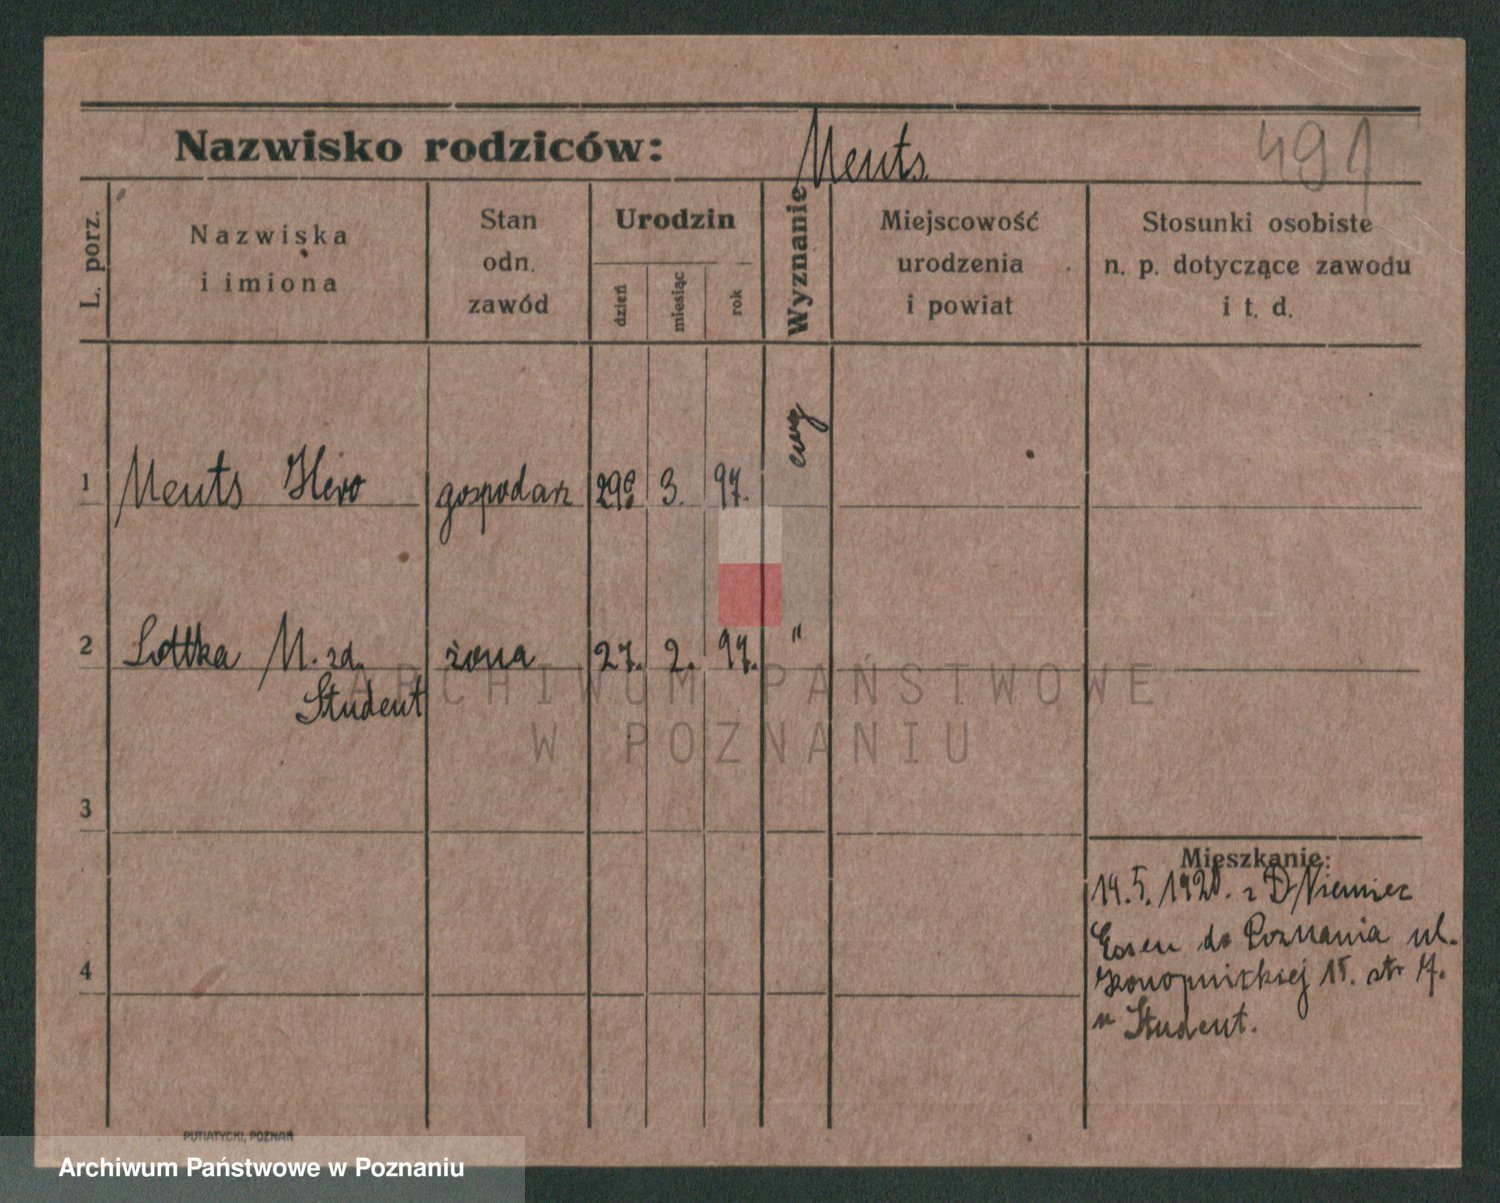 Nazwisko rodziców: Ments
491
L. porz.
Nazwiska
i imiona
Stan
odn.
zawód
Urodzin
dzień
miesiąc
rok
Wyznanie
Miejscowość
urodzenia
i powiat
Stosunki osobiste
n. p. dotyczące zawodu
i t. d.
1 Ments Hero gospodarz 29. 3. 97. ewg
2 Lottka M. zd. żona 27. 2. 97. "
Student
3
4
Mieszkanie:
14.5.1920. z Niemiec
Essen do Poznania ul.
Konopnickiej 15. str 7.
u Student.
PUTIATYCKI, POZNAŃ
ARCHIWUM PAŃSTWOWE
W POZNANIU
Archiwum Państwowe w Poznaniu